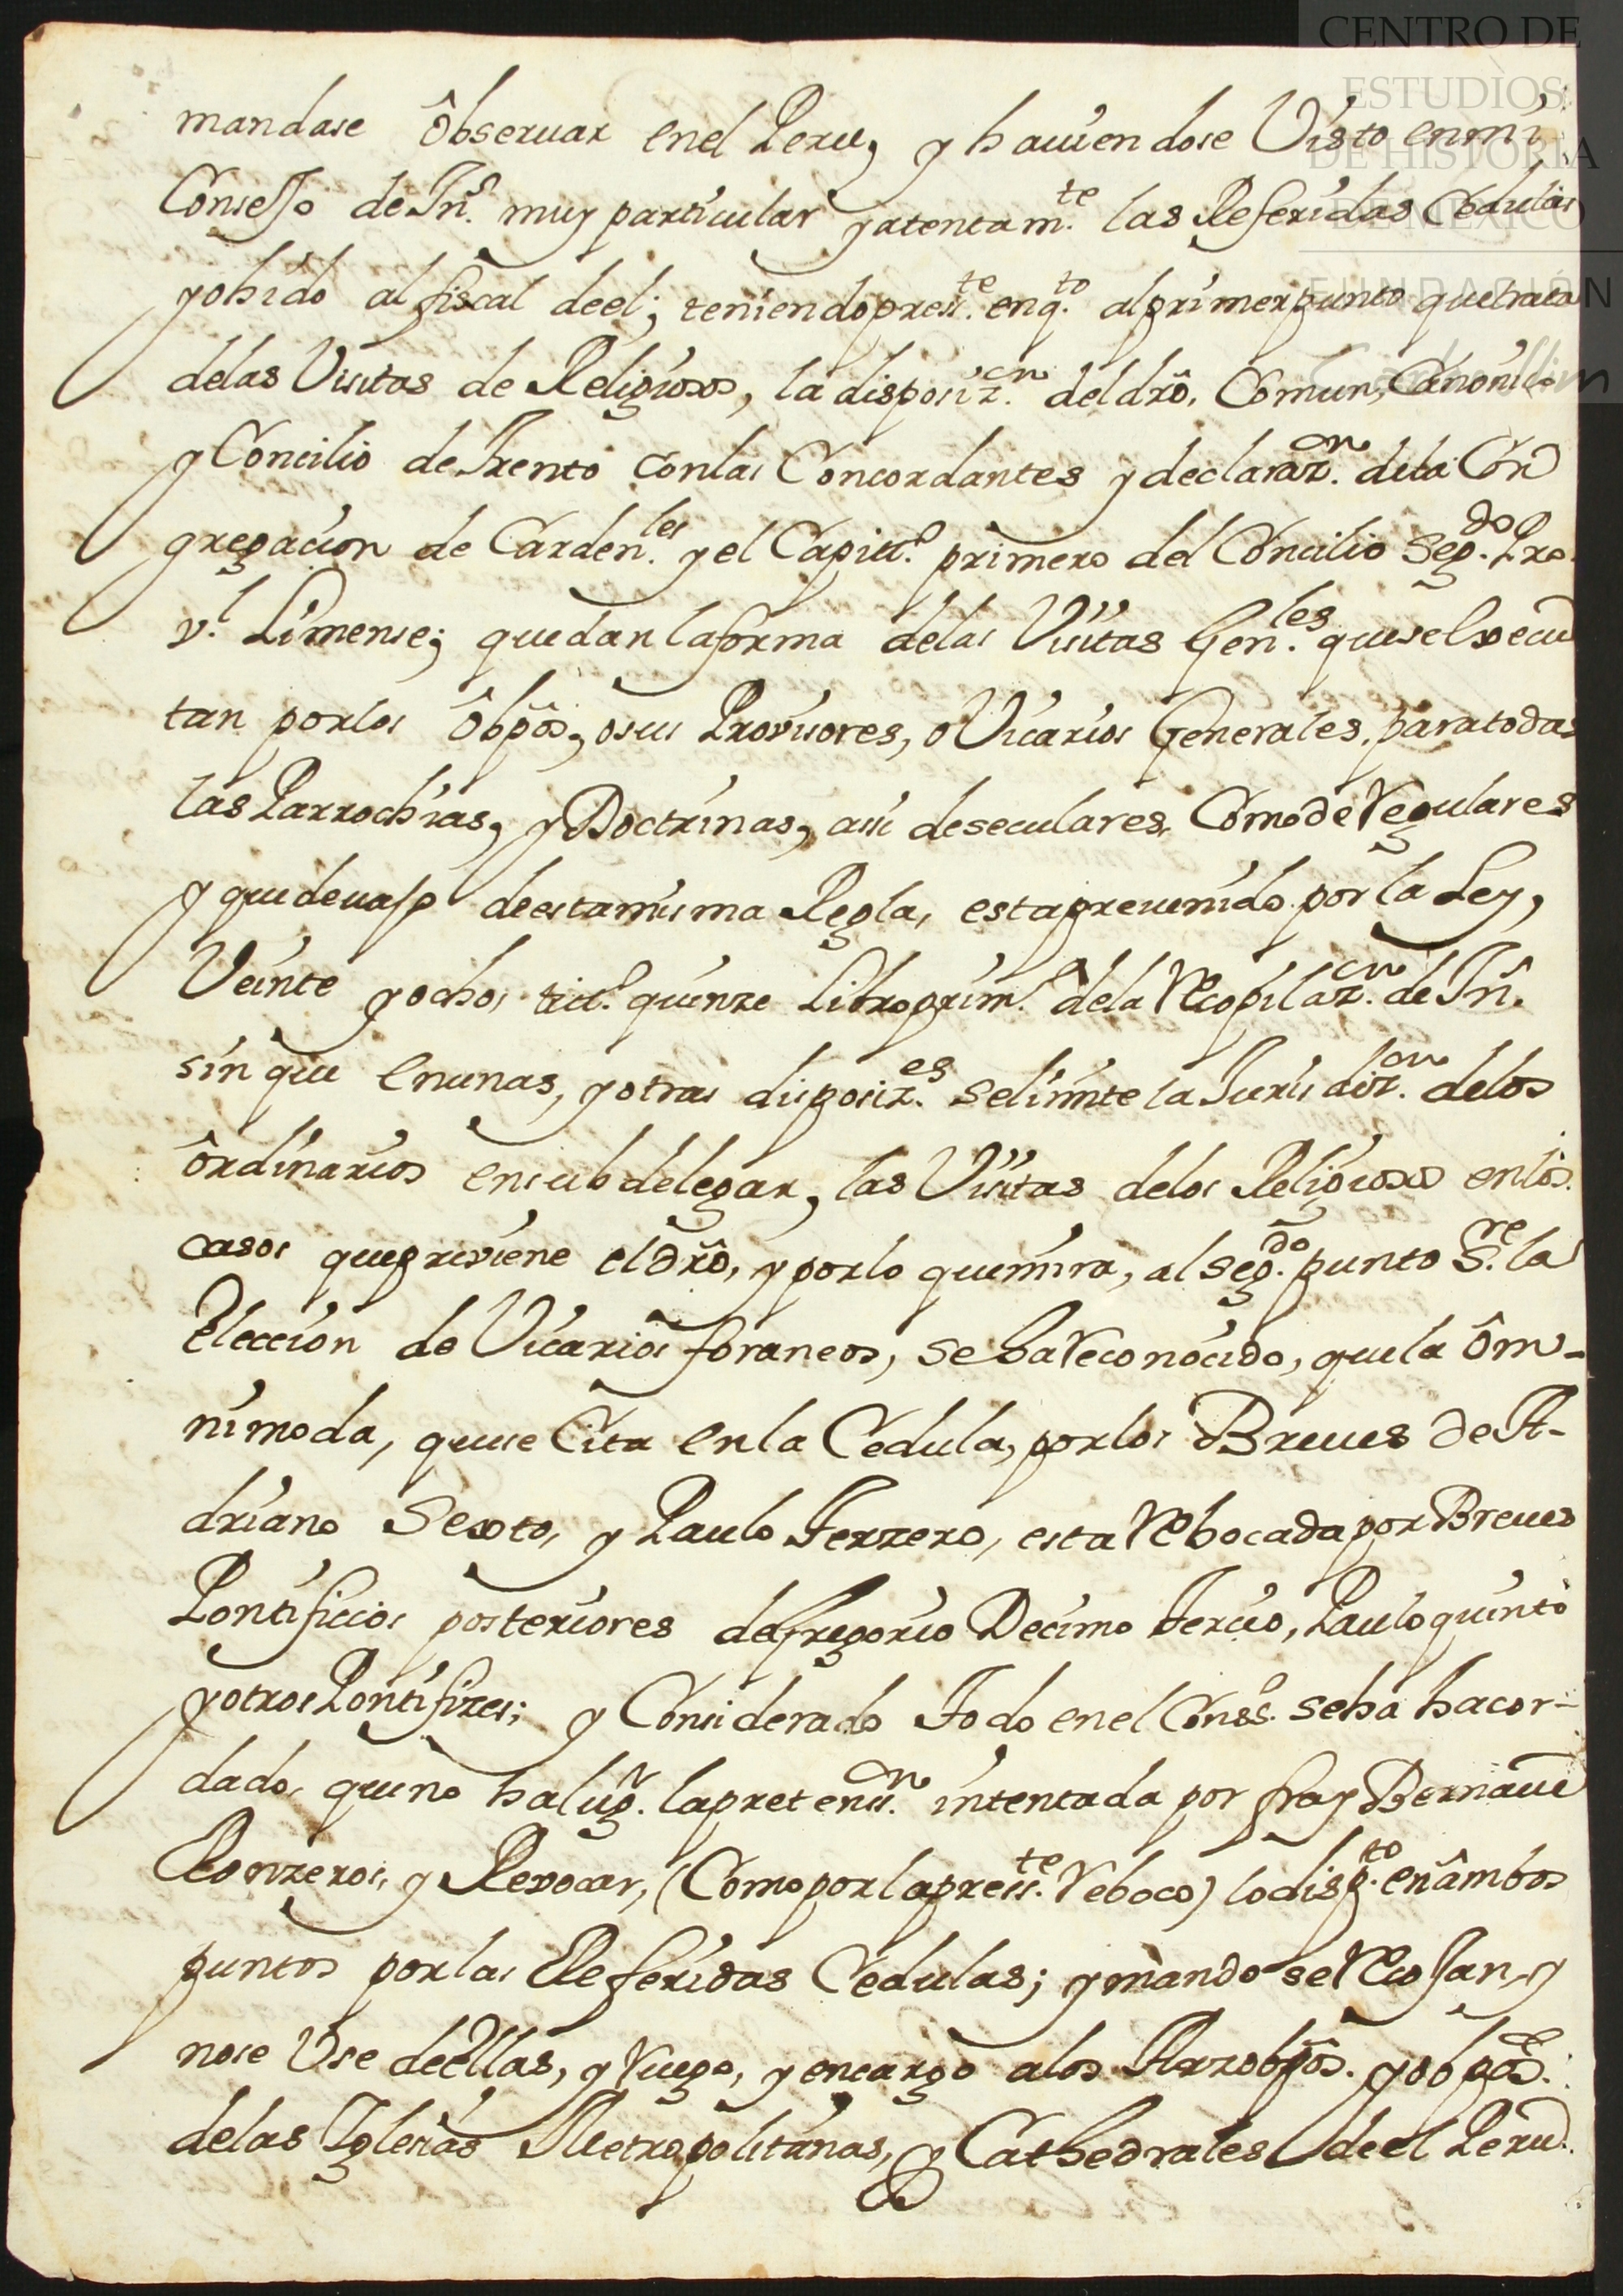 CENTRO DE
ESTUDIOS
DE HISTORIA
DE MEXICO
FUNDACIÓN
mandase ôbseruar enel Peru, y hauiendose Visto enmi
ConseJo de Jnˢ. muy particular yatentamᵗᵉ. las Referidas Cedulas
yohido alfiscal deel; teniendopresᵗᵉ. enqᵗᵒ. alprimerpunto quetrata
delas Visitas de Religiosos, la disposizᵒⁿ. deldrô, Comun, Canonico
y Concilio deTrento conlas Concordantes y declarazᵒⁿ. dela Con
gregacion de Cardenˡᵉˢ. y el Capitᵒ. primero del Concilio Segᵈᵒ. Pro
vˡ. Limense; quedan laforma delas Visitas Genˡᵉˢ. quese Execu
tan porlos ôbpôs, osus Provisores, o Vicarios Generales, paratodas
las Parrochias, y Doctrinas, asi deseculares, Comode Regulares
y quedeuaJo deestamisma Regla, estapreuenido por la Ley,
Veinte yocho, titᵒ. quinze Libroprimᵒ. dela Recopilazᵒⁿ. de Jnˢ.
sin que enunas, yotras disposizᵉˢ. selimite la Jurisdizᵒⁿ. delos
ôrdinarios ensubdelegar, las Visitas delos Religiosos enlos
casos quepreviene el drô, yporlo quemira, al segᵈᵒ. punto Sʳᵉ. la
Eleccion de Vicarios foraneos, se ha Reconocido, quela ôm-
nimoda, quese Cita enla Cedula, porlos Breues de A-
driano Sexto, y Paulo Terzero, esta Rebocada por Breues
Pontificios posteriores deGregorio Decimo Tercio, Paulo quinto
yotros Pontifizes; y Considerado Todo enel Consᵒ. seha hacor-
dado, queno halugʳ. lapretensᵒⁿ. intentada por fray Bernaue
Ronzeros, y Revocar, (Comoporlapresᵗᵉ. Reboco) lodispᵗᵒ. enâmbos
puntos porlas Referidas Cedulas; ymando seRecoJan, y
nose Vse deellas, y Ruego, yencargo alos Arzobpôs. yobpôs.
delas Iglesias Metropolitanas, y Cathedrales deel Peru